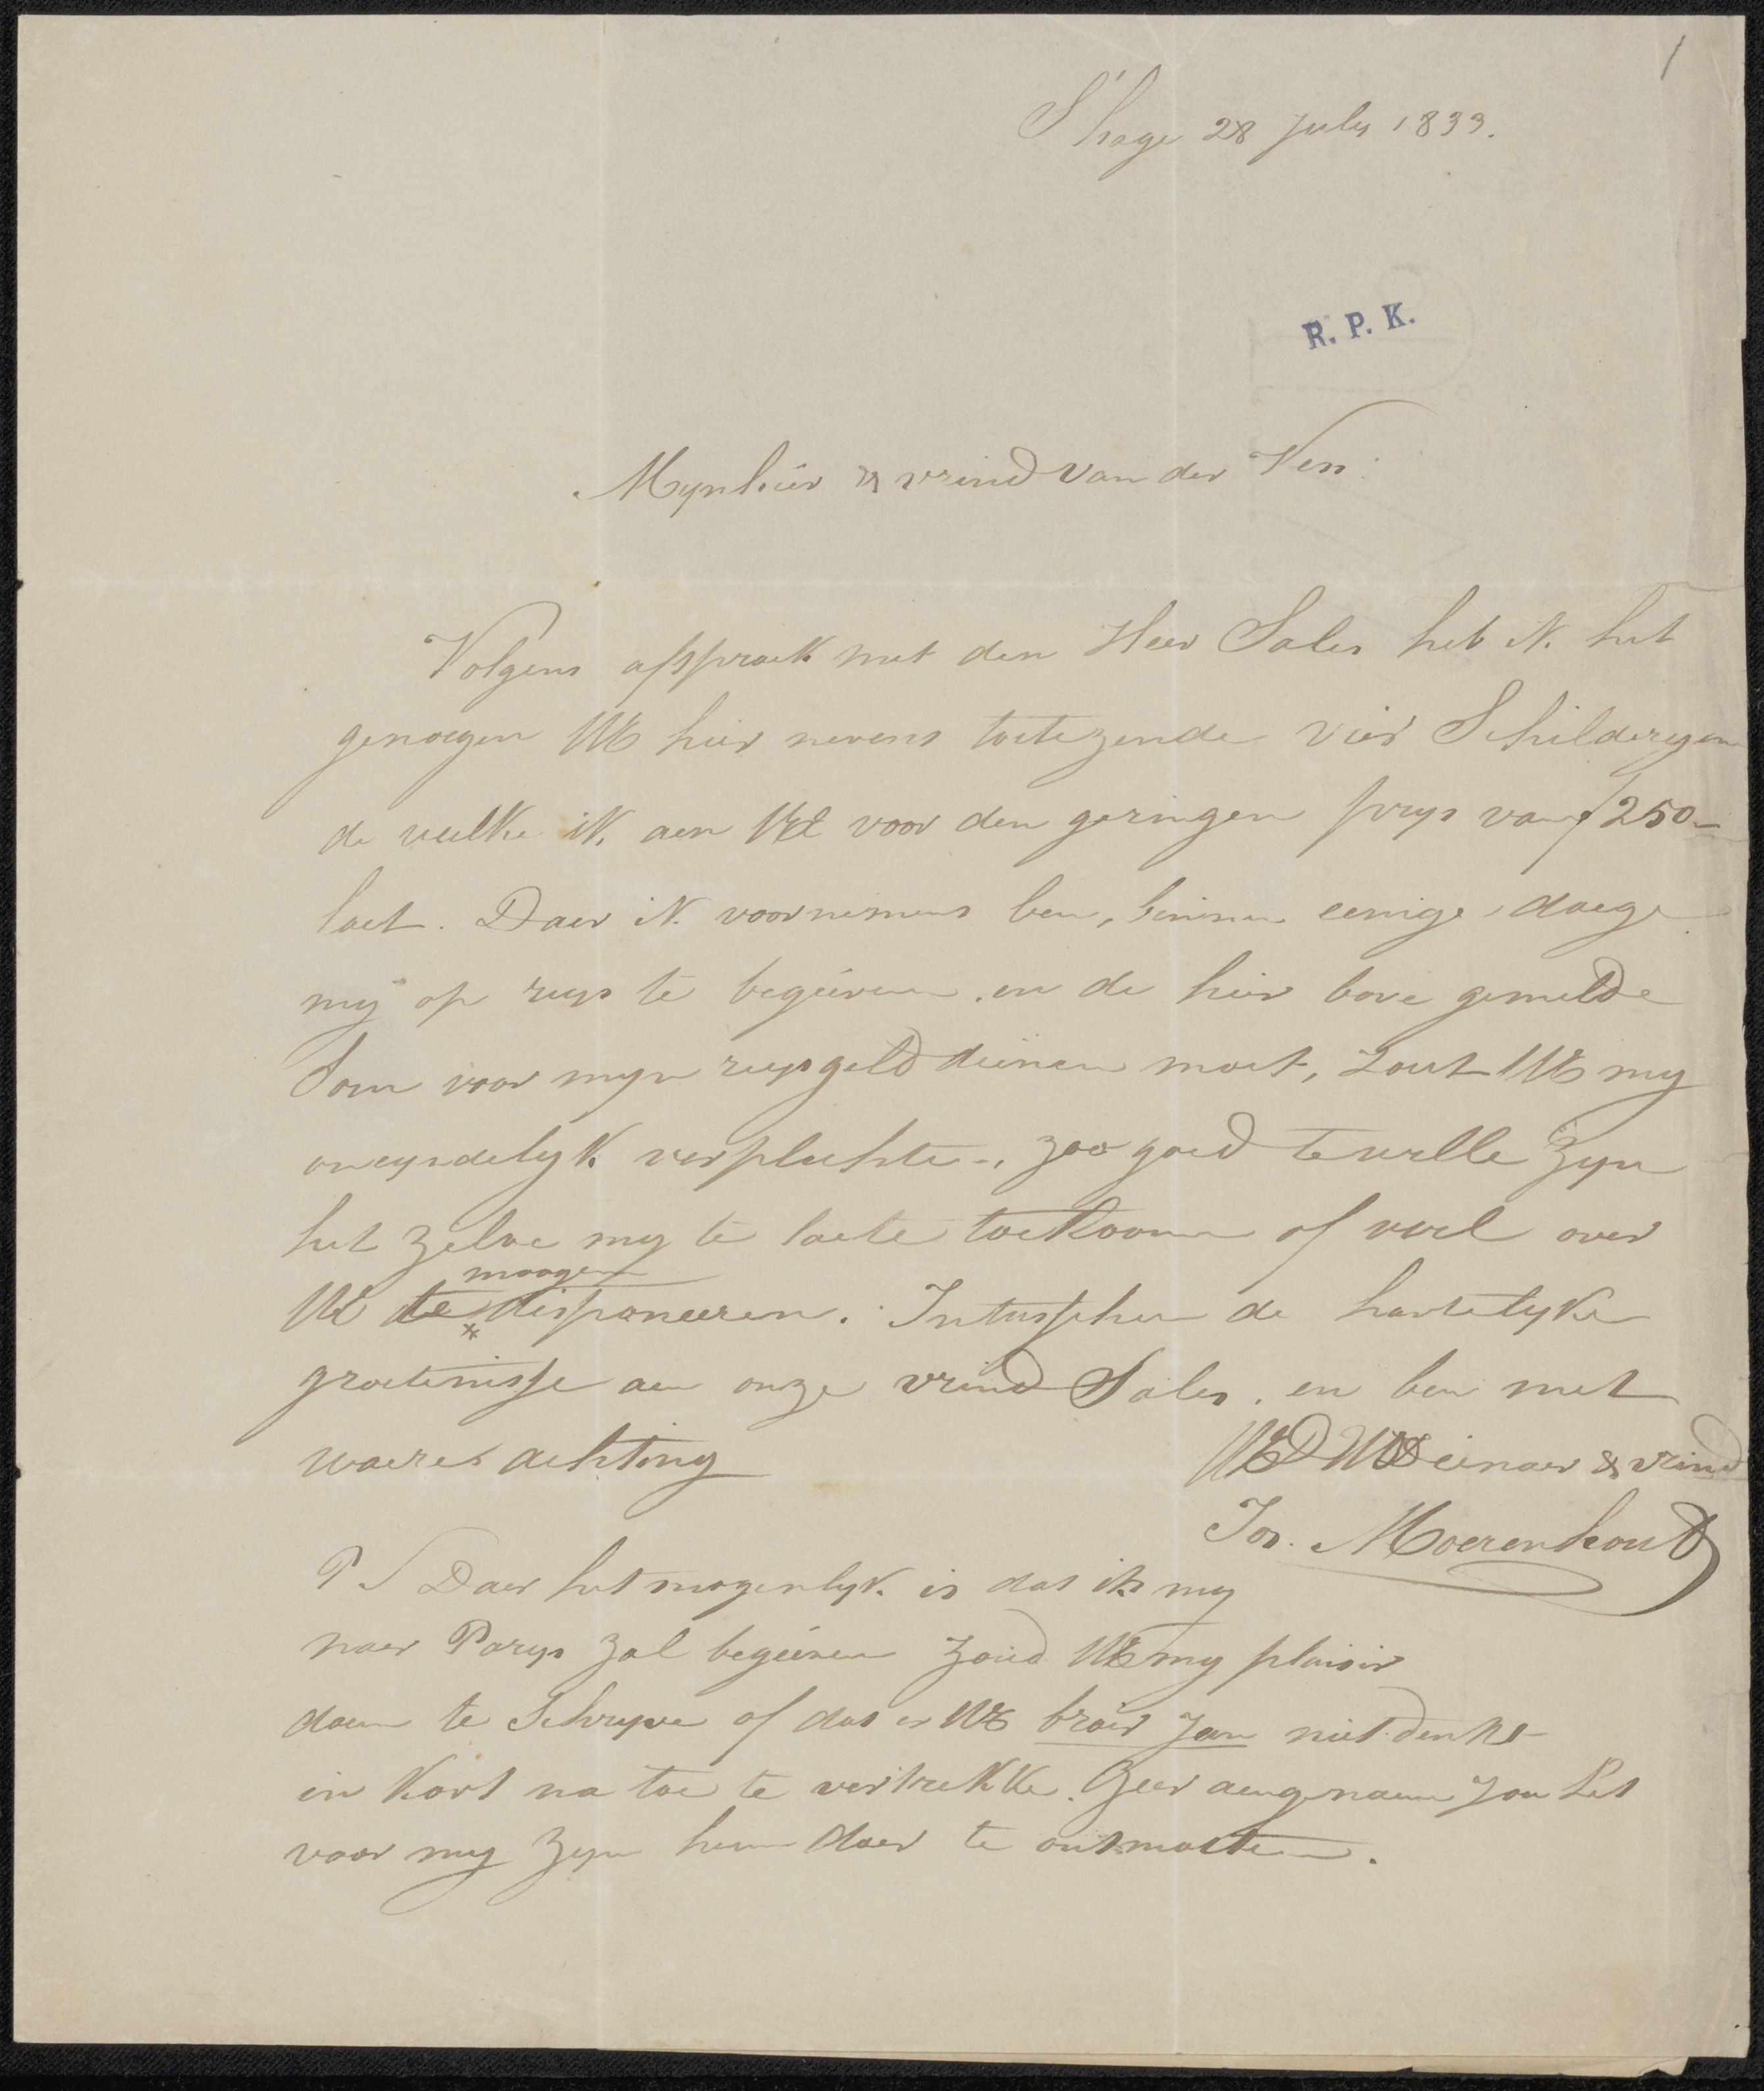 1
S'hage 28 july 1833.
R. P. K.
Mynheer & vrind van der Ven.
Volgens afspraek met den Heer Sales heb ik het
genoegen UE hier nevens toetezende vier Schilderyen
de welke ik aen UE voor den geringen prys van ƒ 250-
laet. Daer ik voornemens ben, binnen eenige daege
my op reys te begeeven, en de hier bove gemelde
Som voor myn reysgeld dienen moet, zout UE my
oneyndelyk verplichte, zoo goed te wille zyn
het zelve my te laete toekoomen of wel over
moogen
UE te disponeeren. Intusschen de hartelyke
groetenisse aen onze vrind Sales, en ben met
waere achting
UED Dienaer & vrind
Jos. Moerenhout
PS Daer het mogenlyk is dat ik my
naer Parys zal begeeven zoud UE my plaisir
doen te Schryve of dat er UE broer Jan niet denkt
in kort na toe te vertrekke. Zeer aengenaem zou het
voor my zyn hem daer te ontmoeten.